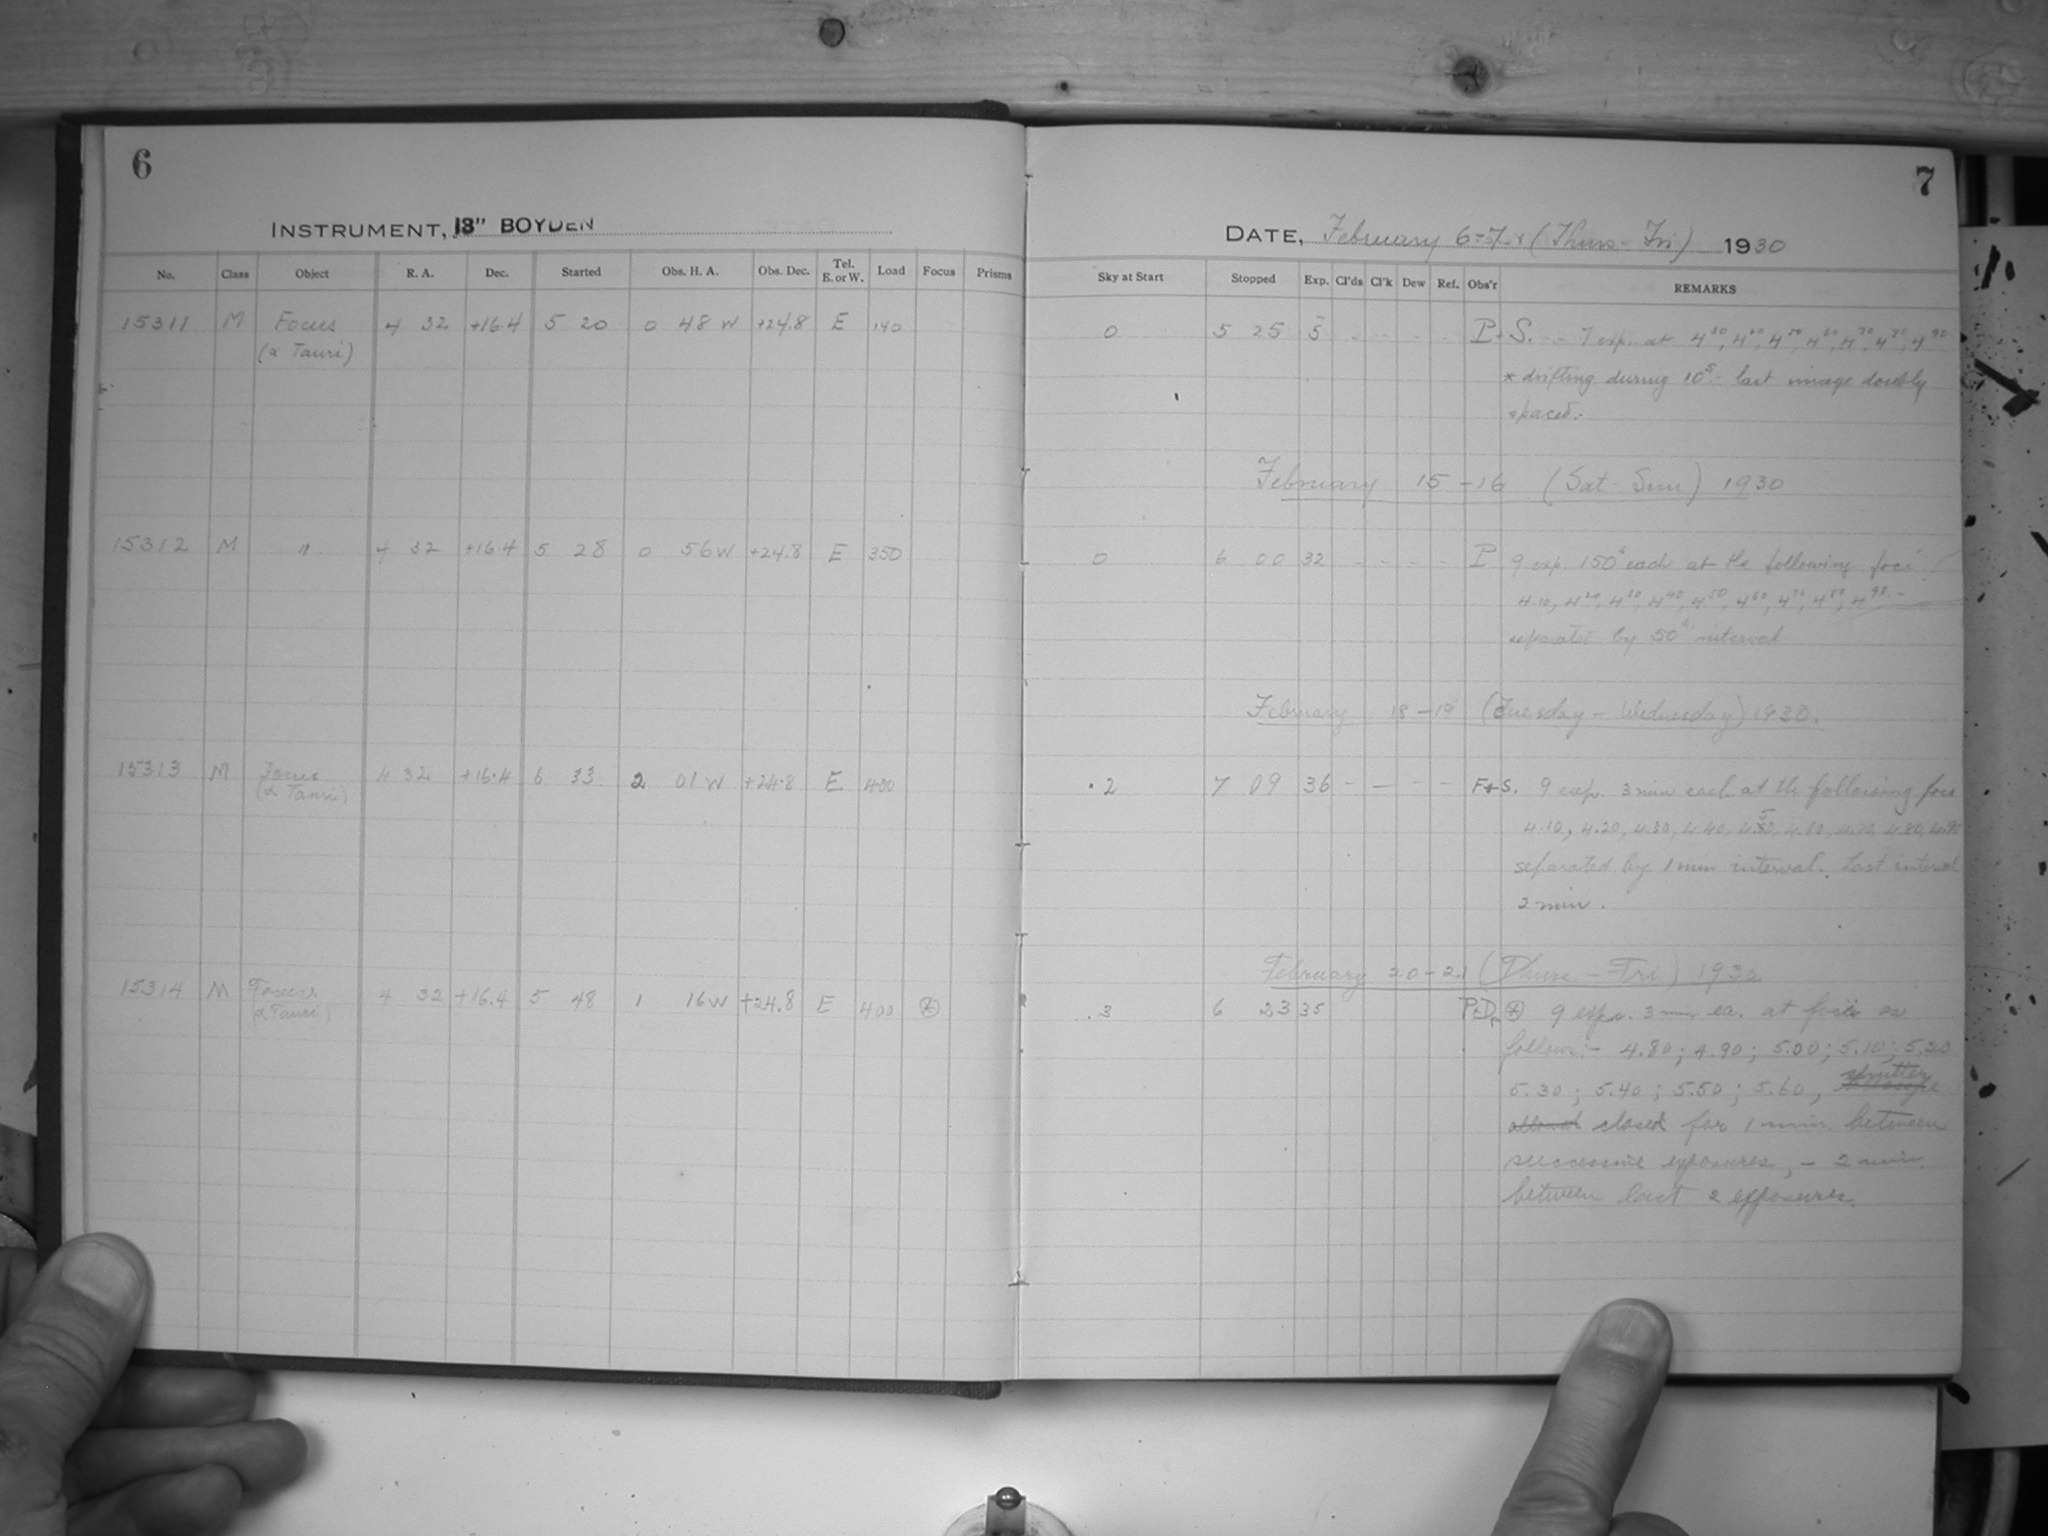 6
INSTRUMENT, 13" BOYDEN
No. Class Object R. A. Dec. Started Obs. H. A. Obs. Dec. Tel. E. or W. Load Focus Prisms
15311 M Focus 4 32 +16.4 5 20 0 48 W +24.8 E 140
(α Tauri)
15312 M " 4 32 +16.4 5 28 0 56 W +24.8 E 350
15313 M Focus 4 32 +16.4 6 33 2 01 W +24.8 E 400
(α Tauri)
15314 M Focus 4 32 +16.4 5 48 1 16 W +24.8 E 400 ⊛
α Tauri)
7
DATE, February 6-7 (Thurs - Fri) 1930
Sky at Start Stopped Exp. Cl'ds Cl'k Dew Ref. Obs'r REMARKS
0 5 25 5 - - - - P+S. - 7 exp. at 4³⁰, 4⁴⁰, 4⁵⁰, 4⁶⁰, 4⁷⁰, 4⁸⁰, 4⁹⁰
* drifting during 10ˢ - last image doubly
spaced.
February 15-16 (Sat - Sun) 1930
0 6 00 32 - - - - P 9 exp. 150ˢ each at the following foci
4.10, 4²⁰, 4³⁰, 4⁴⁰, 4⁵⁰, 4⁶⁰, 4⁷⁰, 4⁸⁰, 4⁹⁰ -
separated by 50ˢ interval
February 18-19 (Tuesday - Wednesday) 1930.
.2 7 09 36 - - - - F+S. 9 exp. 3 min each at the following foci
4.10, 4.20, 4.30, 4.40, 4.50, 4.60, 4.70, 4.80, 4.90
separated by 1 min interval. Last interval
2 min.
February 20-21 (Thurs - Fri) 1930
.3 6 23 35 ⊛ 9 exps. 3 min ea. at foci as
follows:- 4.80; 4.90; 5.00; 5.10; 5.20
5.30; 5.40; 5.50; 5.60, shutter
closed for 1 min. between
successive exposures, - 2 min.
between last 2 exposures.